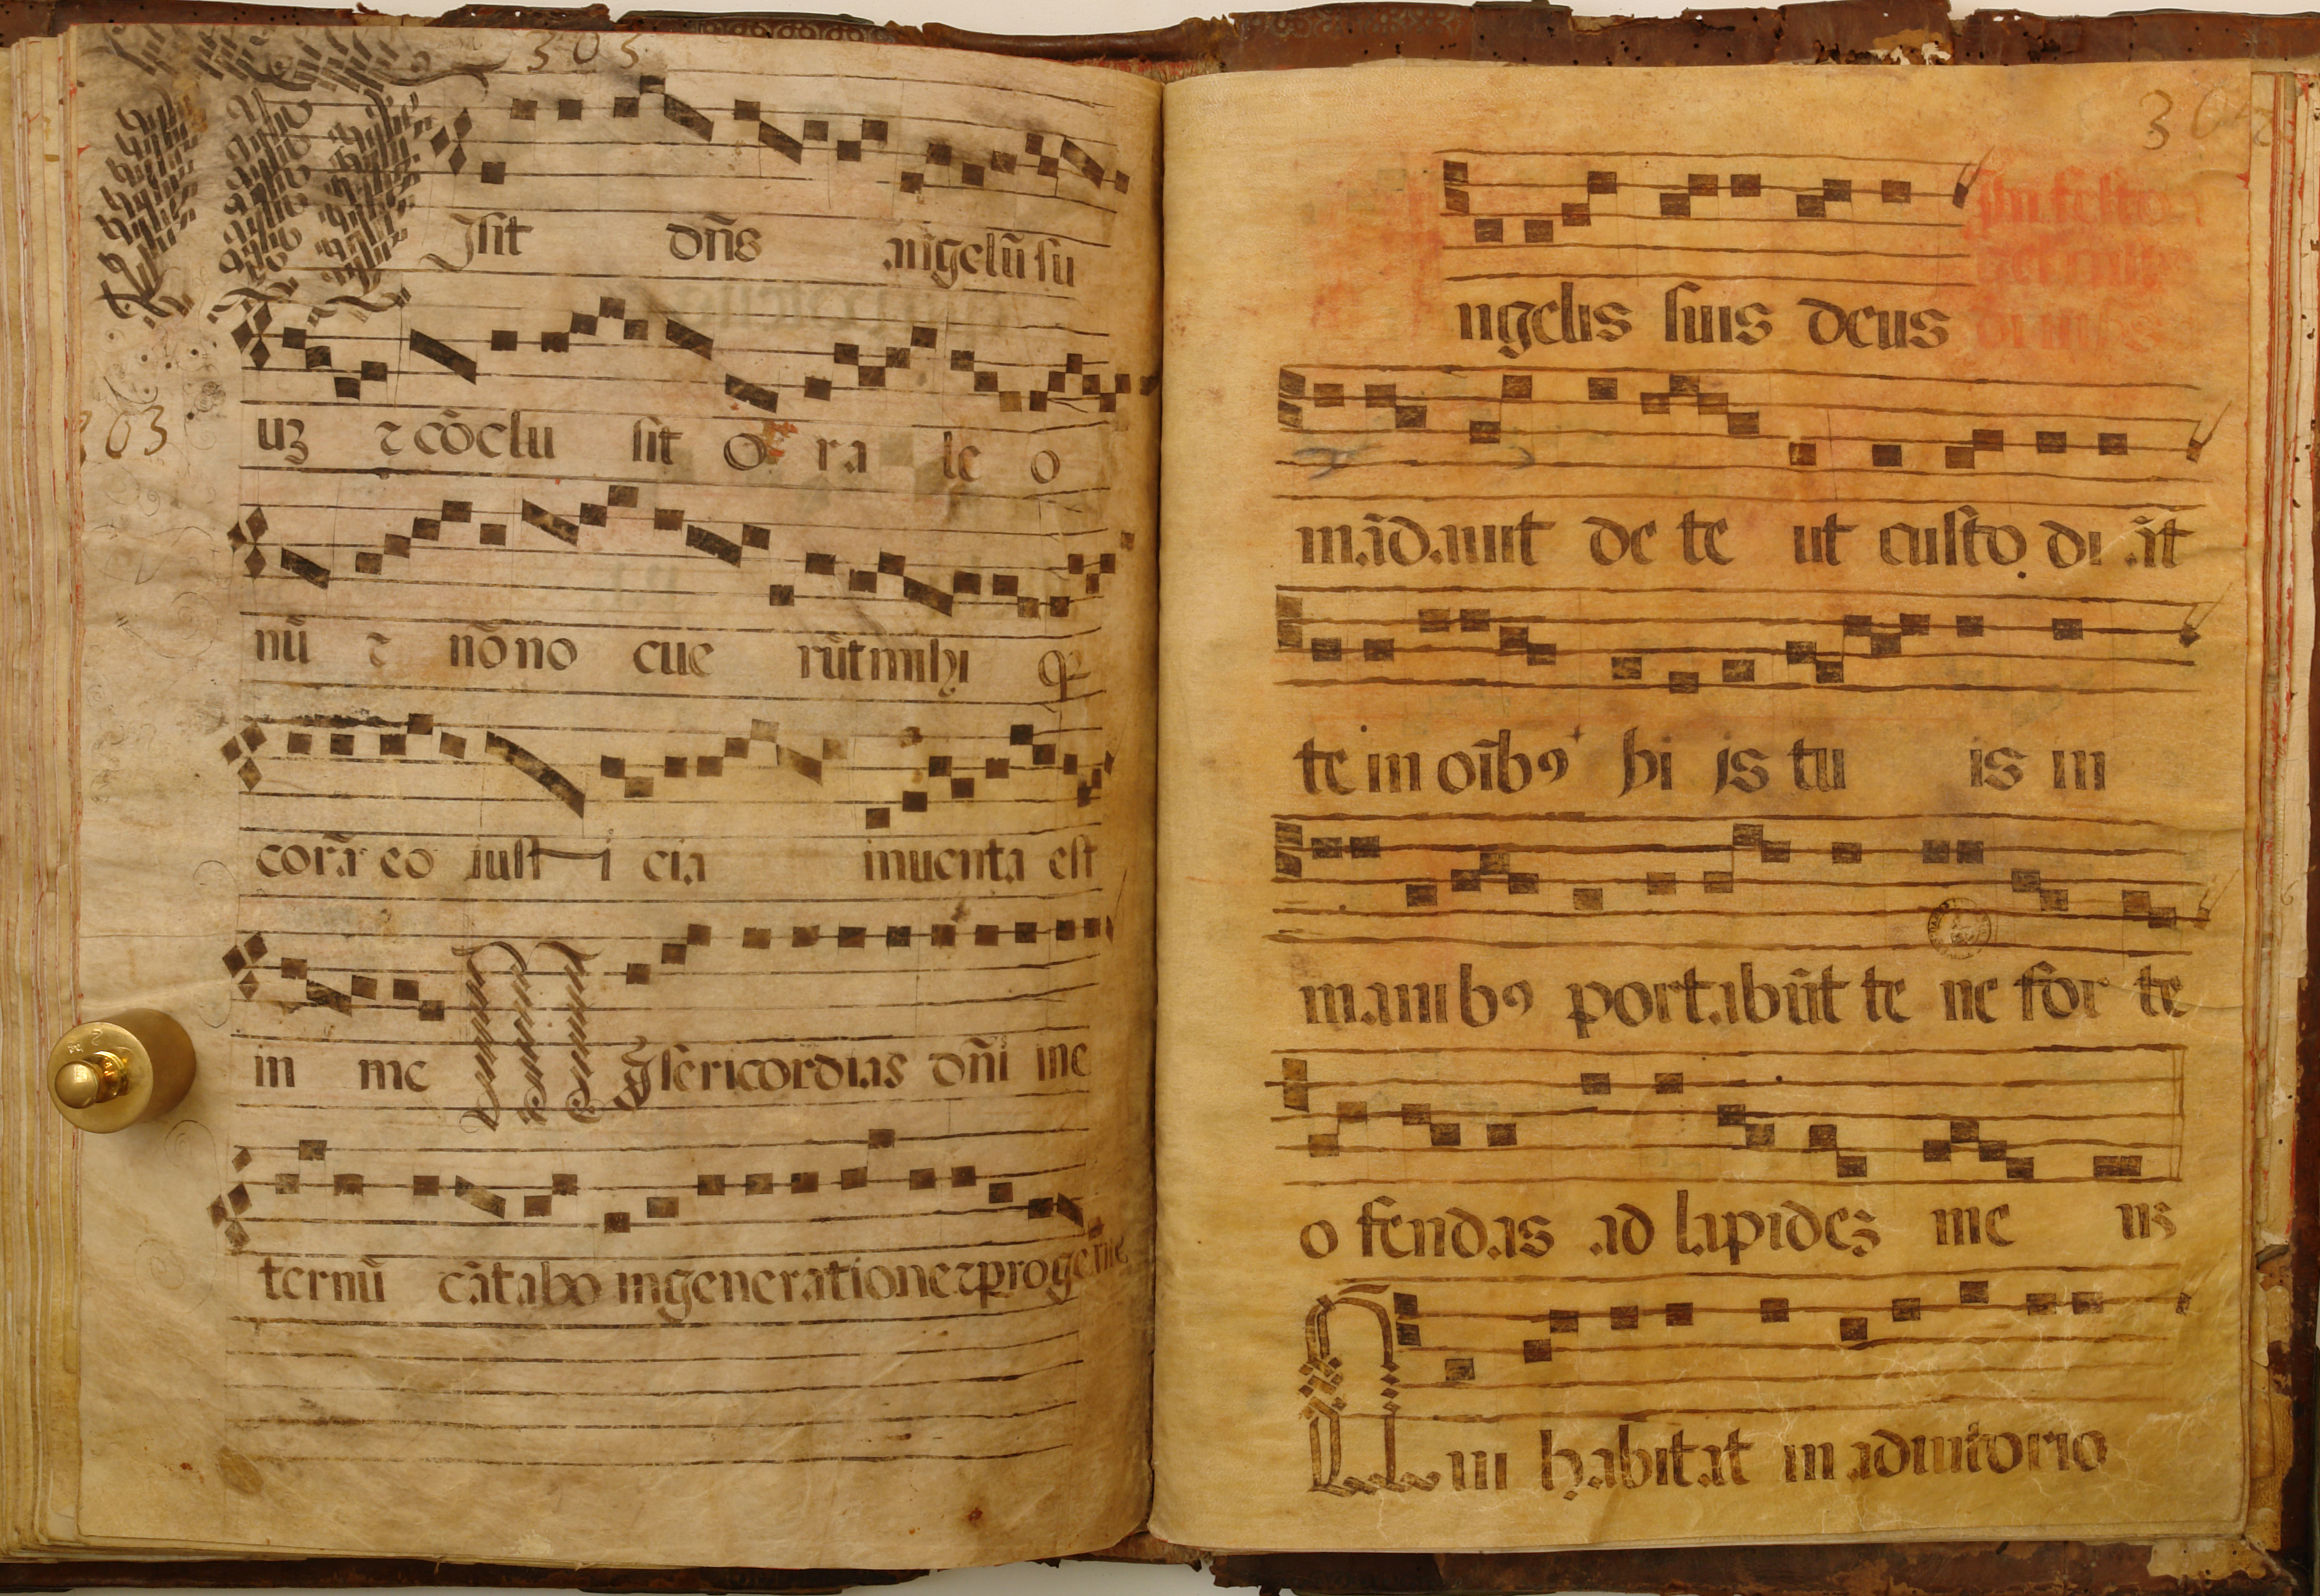 303
Isit dñs angelũ su
303
uz ⁊ cõclu sit o ra le o
nũ ⁊ nõ no cue rũt mihi q̃
corã eo iust i cia inuenta est
in me Misericordias dñi in e
ternũ cãtabo in generatione ⁊ progenie
30
In festo
ngelis suis deus
mãdauit de te ut custo di ãt
te in oĩbꝰ bi is tu is in
manibꝰ portabũt te ne for te
o fendas ad lapidez pe uz
Qui habitat in adiutorio